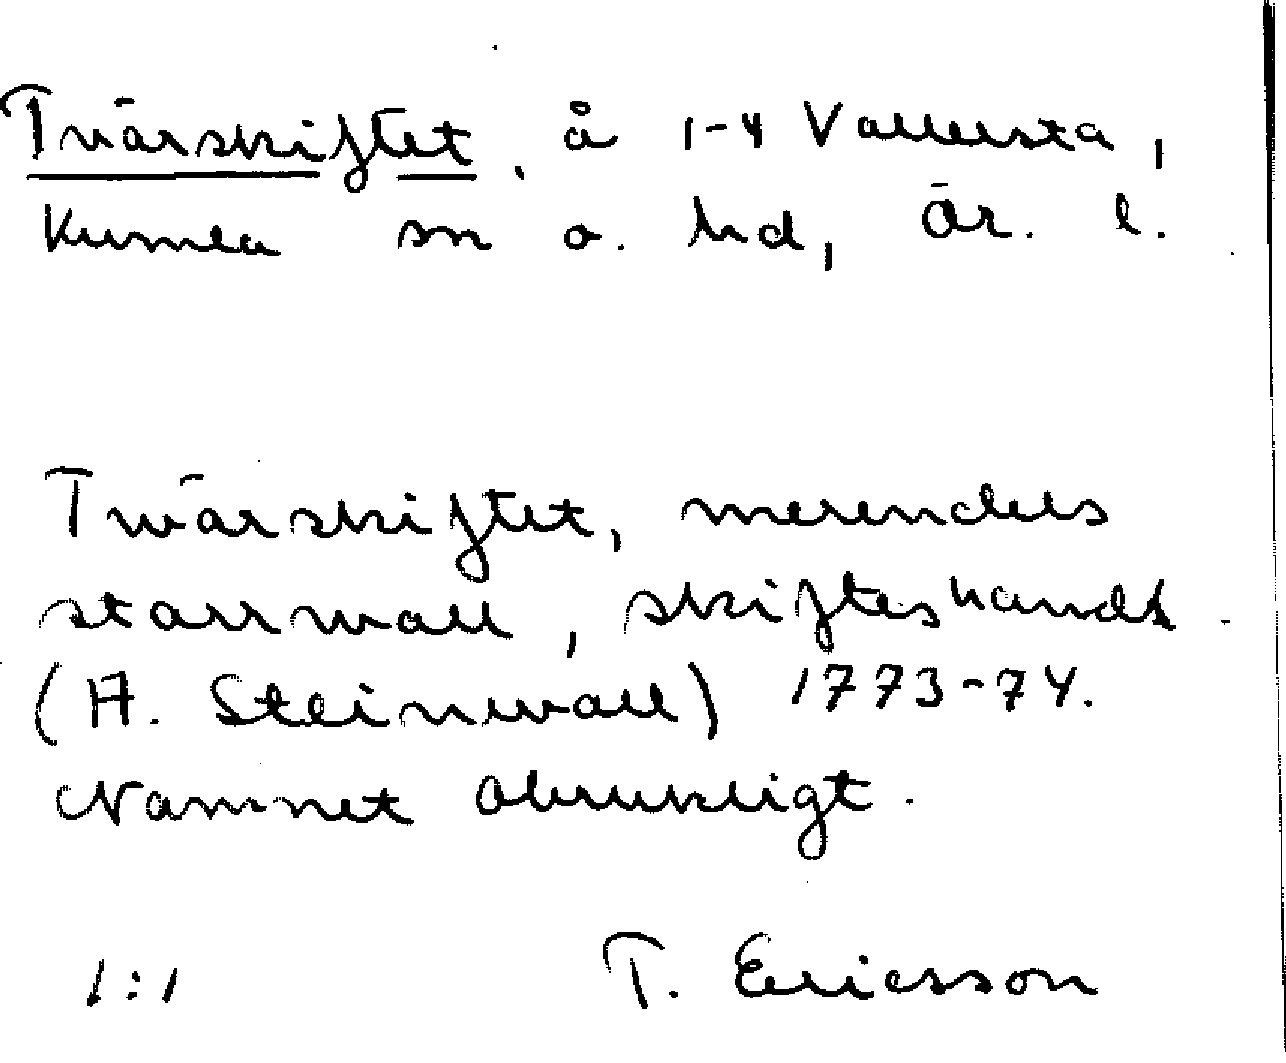 Tvärskiftet, å 1-4 Vallersta,
Kumla sn o. hd, Ör. l.
Twärskiftet, merendels
starrwall, skifteshandl.
(A. Steinwall) 1773-74.
Namnet obrukligt.
1:1 T. Ericsson